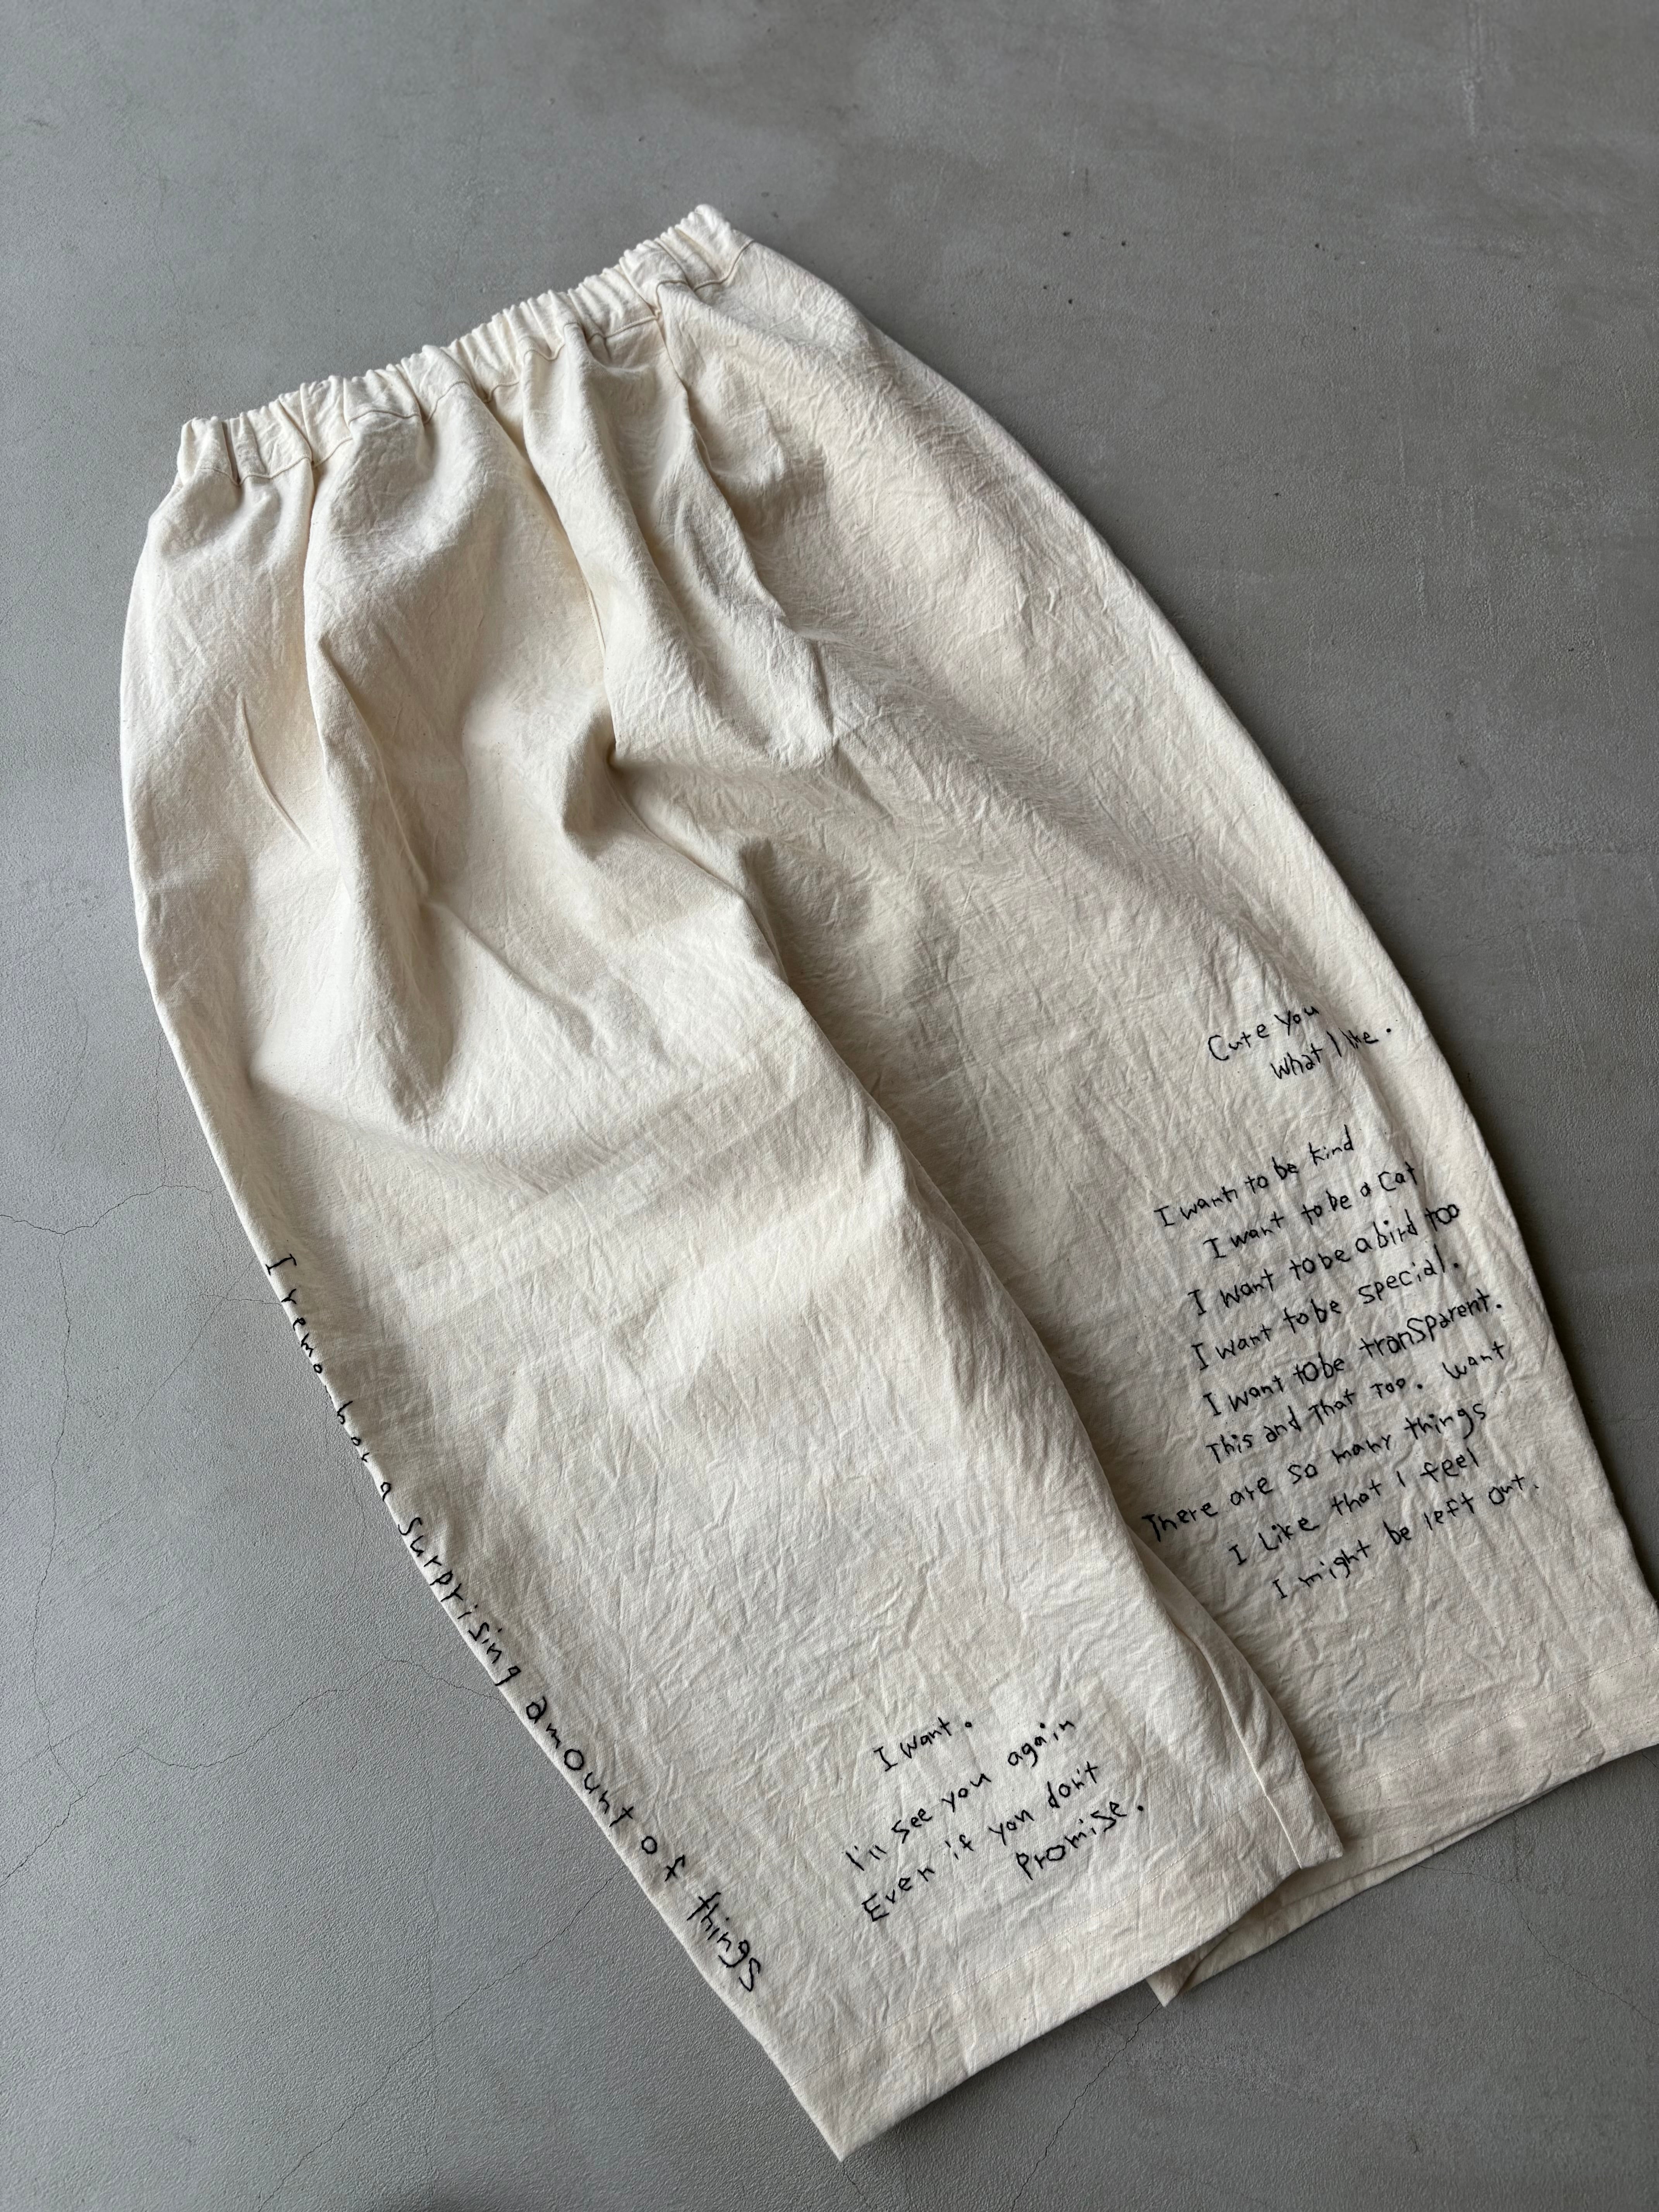 I remember a surprising amount of things
I want.
I'll see you again
Even if you don't
Promise.
Cute you
What I like.
I want to be kind
I want to be a Cat
I want to be a bird too
I want to be special.
I want to be transparent.
This and That Too. want
There are so many things
I Like that I feel
I might be left out.